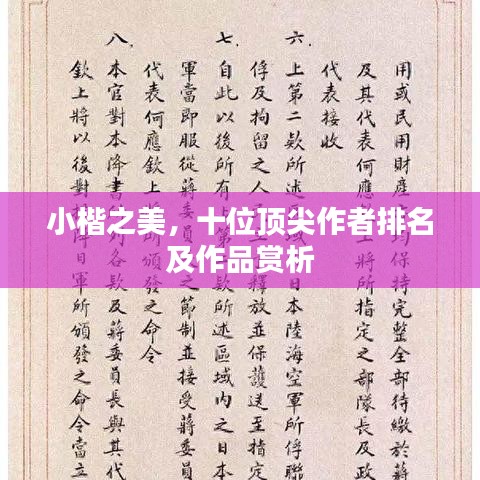 小楷之美，十位顶尖作者排名
及作品赏析
用或民用財產
保持完整全部待繳於蔣
及其代表何應
所指定之部隊長及政
代表接收
六、上第二款所述
日本陸海空軍所俘聯
俘及拘留之
釋放並保護送至指定
七、自此以後所有
所述區域內之日本
軍當即服從蔣
之節制並接受蔣委員
代表何應欽上
之命令
八、本官對本降書
及蔣委員長與其代
欽上將以後對
日軍所頒發之命令當立